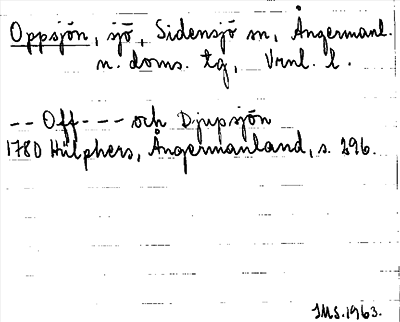 Oppsjön, sjö, Sidensjö sn, Ångermanl.
n. doms. tg, Vrnl. l.
-- Off--- och Djupsjön
1780 Hülphers, Ångermanland, s. 296.
IMS. 1963.